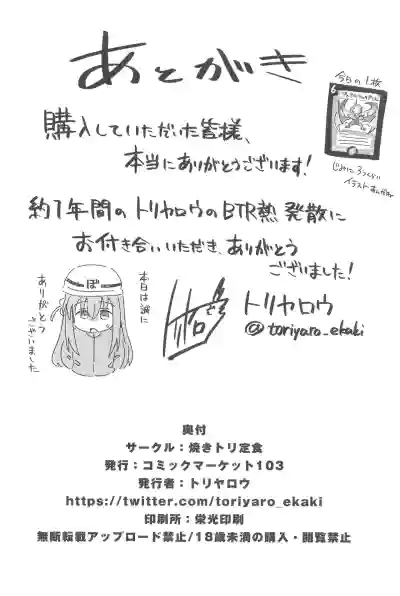 あとがき
今日の1枚
購入していただいた皆様、
本当にありがとうございます!
約1年間のトリヤロウのBTR熱発散に
お付き合いいただき、ありがとう
ございました!
ぼ
本日は誠に
ありがとう
ございました
トリヤロウ
@toriyaro_ekaki
奥付
サークル:焼きトリ定食
発行:コミックマーケット103
発行者:トリヤロウ
https://twitter.com/toriyaro_ekaki
印刷所:栄光印刷
無断転載アップロード禁止/18歳未満の購入・閲覧禁止